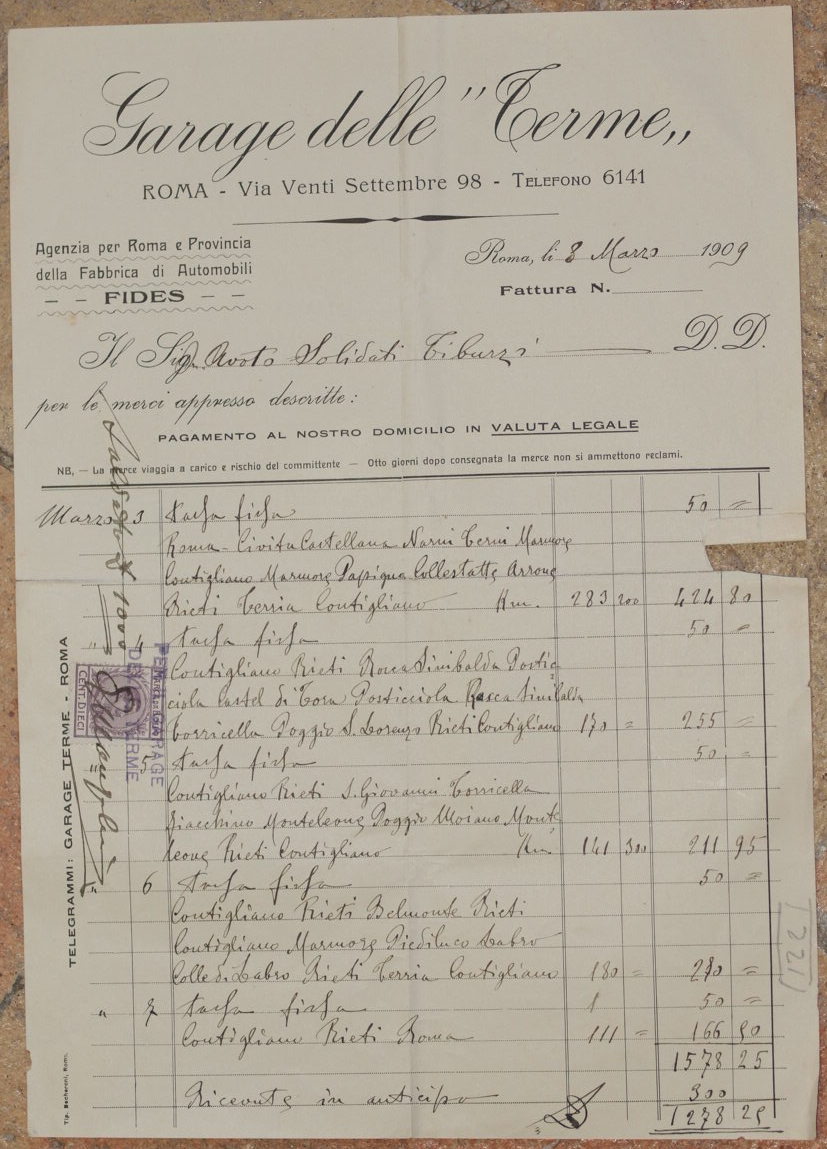 Garage delle "Terme„
ROMA - Via Venti Settembre 98 - Telefono 6141
Agenzia per Roma e Provincia
della Fabbrica di Automobili
- - FIDES - -
Roma, li 8 Marzo 1909
Fattura N.
Il Sig. Avvto Solidati Tiburzi D. D.
per le merci appresso descritte:
PAGAMENTO AL NOSTRO DOMICILIO IN VALUTA LEGALE
NB. — La merce viaggia a carico e rischio del committente — Otto giorni dopo consegnata la merce non si ammettono reclami.
Marzo 3 Tassa fissa 50 =
Roma - Civita Castellana Narni Terni Marmore
Contigliano Marmore Papigno Collestatte Arrone
Rieti Terria Contigliano Km. 283 200 424 80
" 4 Tassa fissa 50 =
Contigliano Rieti Rocca Sinibalda Postic
ciola Castel di Tora Posticciola Rocca Sinibalda
Torricella Poggio S. Lorenzo Rieti Contigliano 170 = 255 =
" 5 Tassa fissa 50 =
Contigliano Rieti S. Giovanni Torricella
Giacchino Monteleone Poggio Moiano Monte
leone Rieti Contigliano Km 141 300 211 95
" 6 Tassa fissa 50 =
Contigliano Rieti Belmonte Rieti
Contigliano Marmore Piediluco Labro
Colle di Labro Rieti Terria Contigliano 180 = 270 =
" 7 Tassa fissa 50 =
Contigliano Rieti Roma 111 = 166 50
1578 25
Ricevute in anticipo 300
1278 25
TELEGRAMMI: GARAGE TERME - ROMA
Tip. Bacheroni, Roma.
CENT. DIECI
PEL GARAGE
DELLE TERME
1221